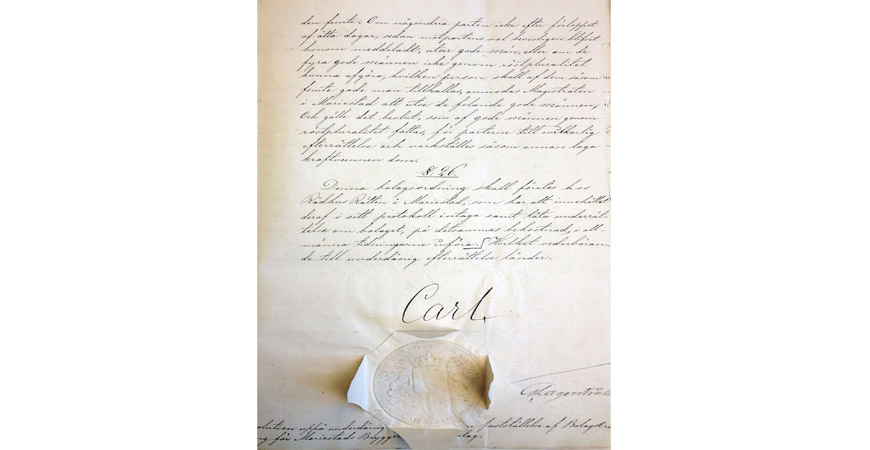 den femte. Om någondera parten icke efter förloppet
af åtta dagar, sedan motpartens val bevisligen blifvit
honom meddeladt, utser gode män, eller om de
fyra gode männen icke genom röstpluralitet
kunna afgöra, hvilken person skall af dem såsom
femte gode man tillkallas, anmodas Magistraten
i Mariestad att utse de felande gode männen;
Och gälle det beslut, som af gode männen genom
röstpluralitet fattas, för parterne till ovilkorlig
efterrättelse och verkställes såsom annan laga
kraftvunnen dom.
§ 26.
Denna bolagsordning skall företes hos
Rådhus Rätten i Mariestad, som har att innehållet
deraf i sitt protokoll intaga samt låta underrät-
telse om bolaget, på detsammas bekostnad, i all-
männa tidningarne införa. Hvilket vederböran-
de till underdånig efterrättelse länder.
Carl.
Lagerstråle
underdånig fastställelse af Bolags
för Mariestads Brygg